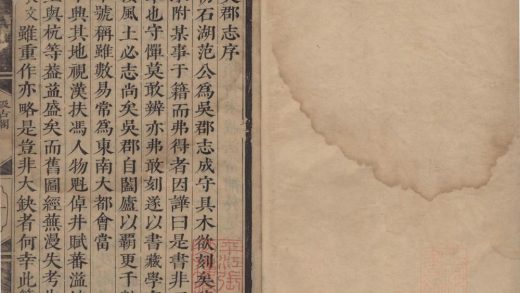 吳郡志序
初石湖范公爲吳郡志成守具木欲刻矣
求附某事于籍而弗得者因譁曰是書非
筆也守憚莫敢辨亦弗敢刻遂以書藏學
風土必志尚矣吳郡自闔廬以霸更千
號稱雖數易常爲東南大都會當
與其地視漢扶馮人物魁倬井賦蕃溢
與杭等蓋益盛矣而舊圖經蕪漫失考
文雖重作亦略是豈非大缺者何幸此
汲古閣